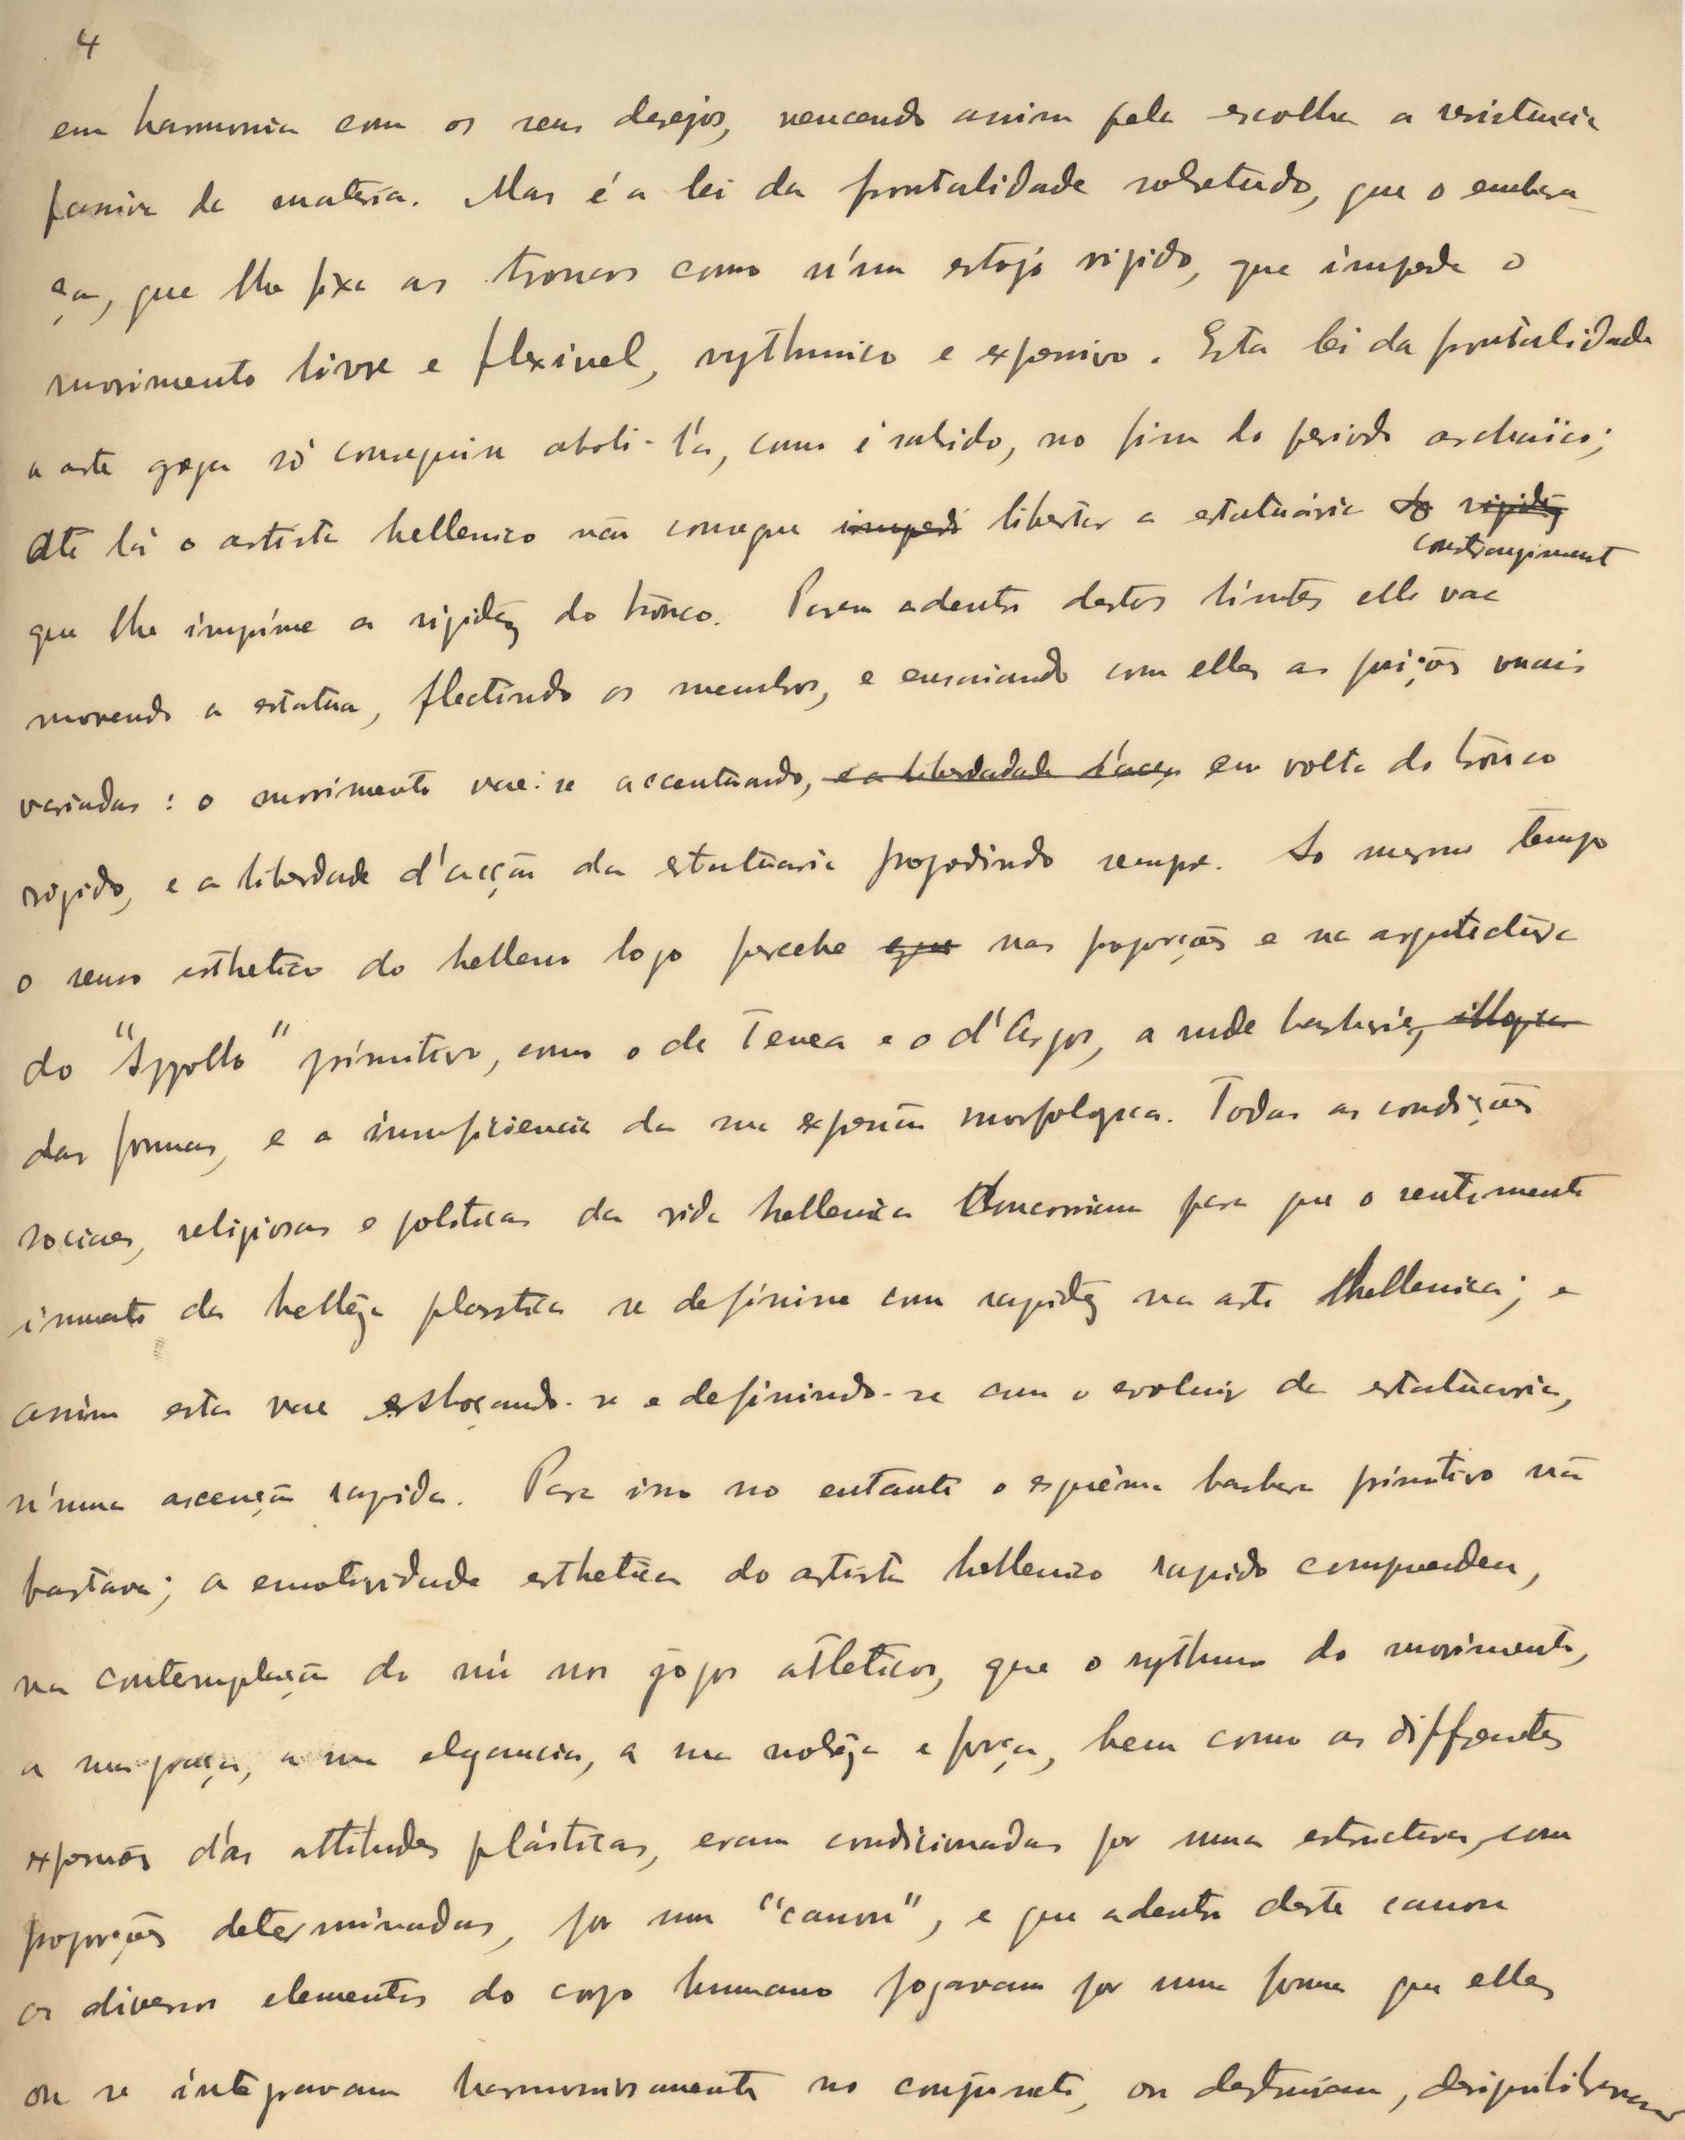 4
em harmonia com os seus desejos, vencendo assim pela escolha a resistencia
passiva da materia. Mas é a lei da frontalidade sobretudo, que o embara-
ça, que lhe fixa os troncos como n'um estojo rigido, que impede o
movimento livre e flexivel, rythmico e expressivo. Esta lei da frontalidade
a arte grega só conseguiu aboli-l'a, como é sabido, no fim do periodo archaïco;
até lá o artista hellenico não consegue impedi libertar a estatuária do rigidêz
constrangiment
que lhe imprime a rigidêz do trônco. Porem adentro destes limites elle vae
movendo a estatua, flectindo os membros, e ensaiando com elles as posições mais
variadas: o movimento vae-se accentuando, e a liberdadade d'acçã em volta do trônco
rigido, e a liberdade d'acção da estatuaria progredindo sempre. Ao mesmo tempo
o senso esthetico do helleno logo percebe que nas proporções e na arquitectura
do "Appollo" primitivo, como o de Tenea e o d'Argos, a rude barbaria, illogica
das formas, e a insuficiencia da sua expressão morfologica. Todas as condições
sociaes, religiosas e politicas da vida hellenica concorriam para que o sentimento
innato da bellêza plastica se definisse com rapidêz na arte hellenica; e
assim esta vae esboçando-se e definindo-se com o evoluir da estatuaria,
n'uma ascenção rapida. Para isso no entanto o esquêma barbaro primitivo não
bastava; a emotividade esthetica do artista hellenico rapido comprendeu,
na contemplação do nú nos jogos atleticos, que o rythmo do movimento,
a sua graça, a sua elegancia, a sua nobrêza e força, bem como as differentes
expressões d'ás attitudes plásticas, eram condicionadas por uma estructura, com
proporções determinadas, por um "canon", e que adentro deste canon
os diversos elementos do corpo humano jogavam por uma forma que elles
ou se integravam harmoniosamente no conjuncto, ou destruiam, desiquilibravam